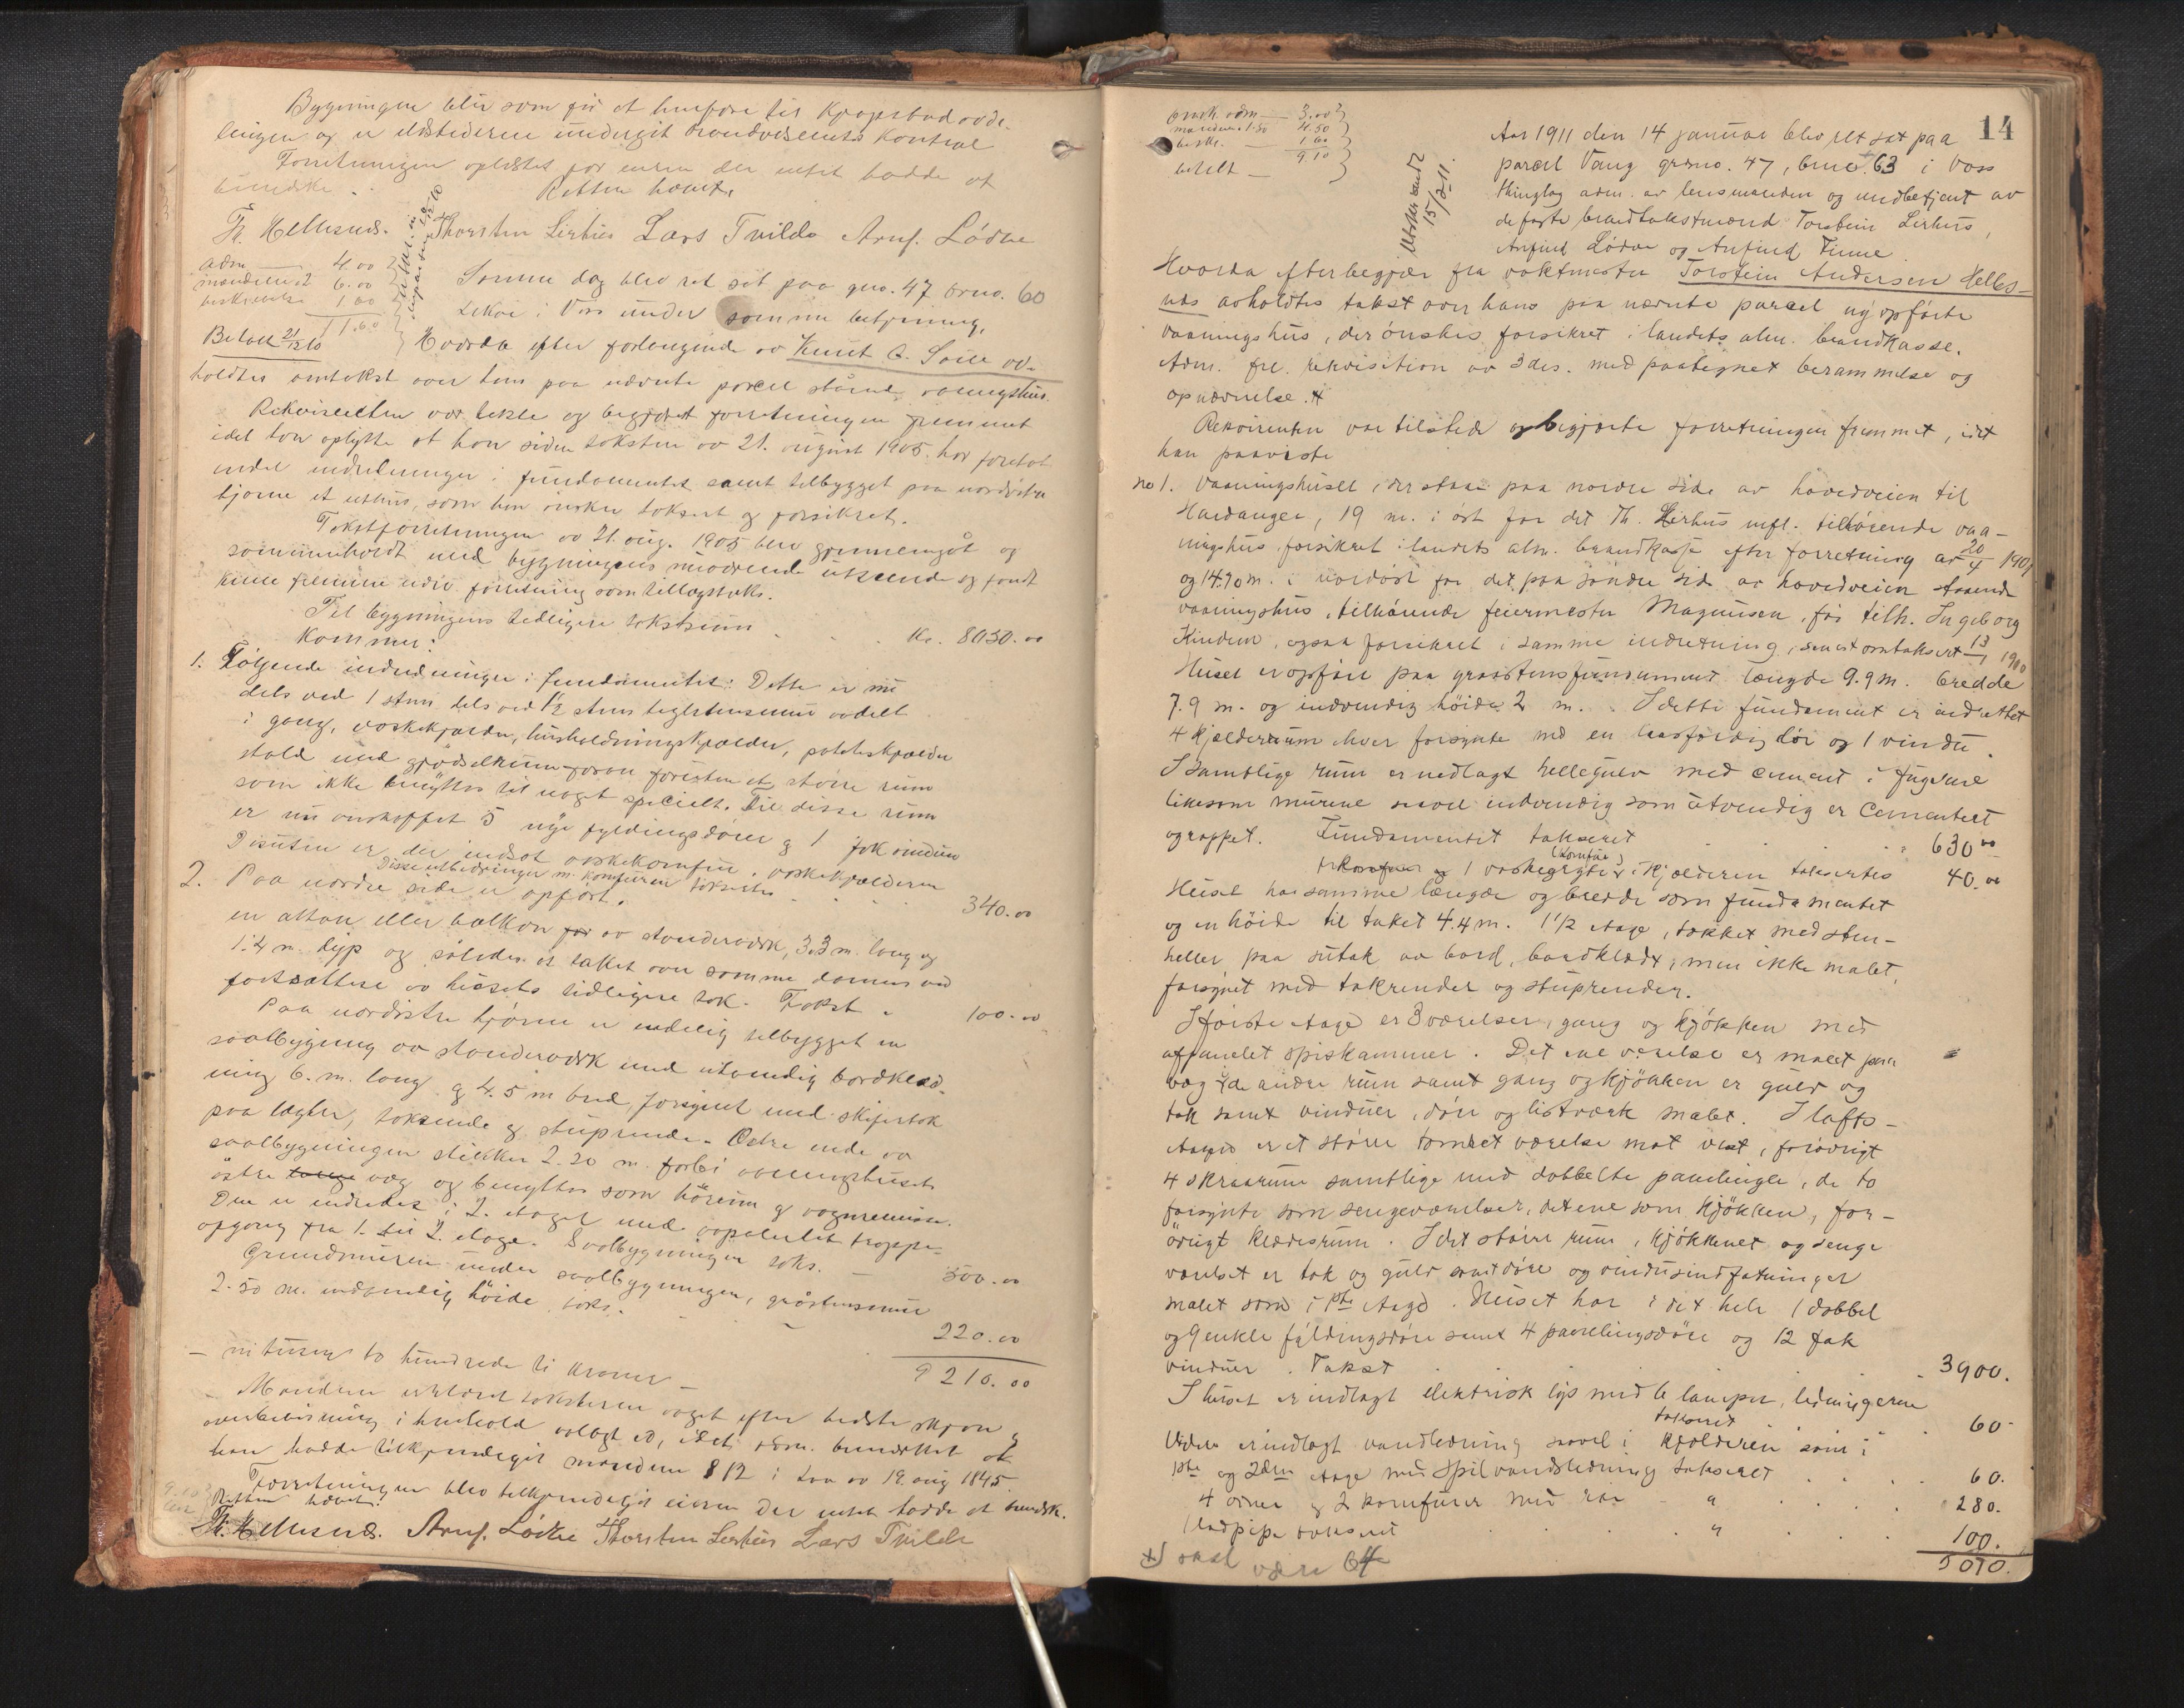 Bygningen blir som før at henføre til Kjøpstadavde-
lingen og er ildstederne undergit brandvæsenets Kontrol
Forretningen oplæstes for eieren der intet hadde at
bemerke.
Retten hævet.
Th. Hellesnes. Thorsten Lirhus Lars Tvilde Arnf. Lødve
adm 4.00
mændene 2 6.00
beskrivelse 1.60
11.60
Betalt 21/12 10
Samme dag blev ret sat paa gno. 47 brno. 60
Lekve i Voss under samme betjening.
Hvorda efter forlangende av Knut A. Saue av-
holdtes omtakst over hans paa nævnte parcel stående vaaningshus.
Rekvirenten var tilstede og begjærte forretningen fremmet
idet han oplyste at han siden taksten av 21. august 1905 har foretat
endel indredninger i fundamentet samt tilbygget paa nordøstre
hjørne et uthus, som han ønsker taksert og forsikret.
Takstforretningen av 21. aug. 1905 blev gjennemgåt og
sammenholdt med bygningens nuværende utseende og fandt
kunne fremme nærv. forretning som tillægstakst.
Til bygningens tidligere takstsum Kr. 8050.00
Kommer:
1. Følgende indredninger i fundamentet: Dette er nu
dels ved 1 stens dels ved 1/2 stens teglstensmur avdelt
i gang, vaskekjælder, husholdningskjælder, potetskjælder
stald med gjødselrum foran foruten et større rum
som ikke benyttes til noget specielt. Til disse rum
er nu anskaffet 5 nye fyldingsdører og 1 fok vindu
Desuten er der indsat vaskekomfur i vaskekjælderen
Disse utbedringer m. komfuren takseres 340.00
2. Paa nordre side er opført
en altan eller balkon for av stenderverk, 3.3 m. lang og
1.4 m. dyp og således at taket over samme dannes ved
fortsættelse av husets tidligere tak. Takst 100.00
Paa nordøstre hjørne er endelig tilbygget en
svalbygning av stenderverk med utvendig bordklæd-
ning 6. m. lang og 4.5 m bred, forsynet med skifertak
paa lægter, takrende og stuprende. Østre ende av
svalbygningen stikker 2.20 m. forbi vaaningshusets
østre væg og benyttes som hørum og vognremisse.
Den er indredet i 2. etager med avpanelet trappe-
opgang fra 1. til 2. etage. Svalbygningen taks. 500.00
Grundmuren under svalbygningen, gråstensmur
2.50 m. indvendig høide, taks. 220.00
9210.00
– nitusen to hundrede ti kroner –
Mændene erklæret taksterne avgit efter bedste skjøn og
overbevisning i henhold avlagt ed, idet adm. bemerket at
han hadde tilkjendegit mændene § 12 i lov av 19. aug 1845.
Forretningen blev tilkjendegit eieren der intet hadde at bemerk.
Retten hævet.
Th. Hellesnes. Arnf. Lødve Thorsten Lirhus Lars Tvilde
14
brask. adm 3.00
mændene 1.50 4.50
beskr. 1.60
9.10
betalt
Utskr sendt
15/2 11.
Aar 1911 den 14 januar blev ret sat paa
parcel Vang grsno. 47, brno. 63 i Voss
thinglag adm. av lensmanden og medbetjent av
de faste brandtakstmænd Torstein Lirhus,
Arnfind Lødve og Anfind Finne
Hvorda efter begjær fra vaktmester Torstein Andersen Helles-
nes avholdtes takst over hans paa nævnte parcel ny opførte
vaaningshus, der ønskes forsikret i landets alm. brandkasse.
Adm. frl. rekvisition av 3 ds. med paategnet berammelse og
opnævnelse.
Rekvirenten var tilstede og begjærte forretningen fremmet, idet
han paaviste
No 1. Vaaningshuset, der staar paa nordre side av hovedveien til
Hardanger, 19 m. i øst for det Th. Lirhus mfl. tilhørende vaa-
ningshus, forsikret i landets alm. brandkasse efter forretning av 20/4 1901
og 14.70 m. i nordøst for det paa søndre side av hovedveien staaende
vaaningshus, tilhørende feiermester Magnusen, før tilh. Ingeborg
Kindem, ogsaa forsikret i samme indretning, senest omtaksert 13/1 1910
Huset er opført paa graastensfundament længde 9.9 m. bredde
7.9 m. og indvendig høide 2 m. I dette fundament er indrettet
4 kjælderrum hver forsynte med en laasfærdig dør og 1 vindu.
I samtlige rum er nedlagt hellegulv med cement i fugerne
likesom murene saavel indvendig som utvendig er cementert
og rappet. Fundamentet takseret 630 00
1 vaskegryte (komfur) i kjælderen takseres 40.00
Huset har samme længde og bredde som fundamentet
og en høide til taket 4.4 m. 1 1/2 etage, tækket med sten-
heller paa sutak av bord, bordklædt, men ikke malet,
forsynet med takrender og stuprender.
I første etage er 3 værelser, gang og kjøkken med
afpanelet spiskammer. Det ene værelse er malet paa
væg, de andre rum samt gang og kjøkken er gulv og
tak samt vinduer, døre og listverk malet. I lofts-
etagen er et større tømret værelse mot vest, forøvrigt
4 skraarum samtlige med dobbelte panelinger, de to
forsynte som sengeværelser, det ene som kjøkken, for-
øvrigt klædesrum. I det større rum, kjøkkenet og senge
værelset er tak og gulv samt døre og vindusindfatninger
malet som i 1ste etage. Huset har i det hele 1 dobbel
og 9 enkle fyldingsdøre samt 4 panelingsdøre og 12 fak
vinduer. Takst 3900.
I huset er indlagt elektrisk lys med 6 lamper, ledningerne
takseret 60
Videre er indlagt vandledning saavel i kjælderen som i
1ste og 2den etage med spilvandsledning takseret 60.
4 ovner og 2 komfurer med rør " 280.
1 ladpipe takseret " 100.
5070.
x) skal være 64